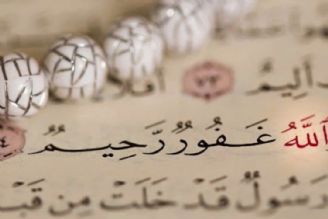 أَلِيمٌ ٧٣ أَفَلَا
ٱللَّهُ غَفُورٌ رَّحِيمٌ ٤
رَسُولٌ قَدْ خَلَتْ مِن قَب